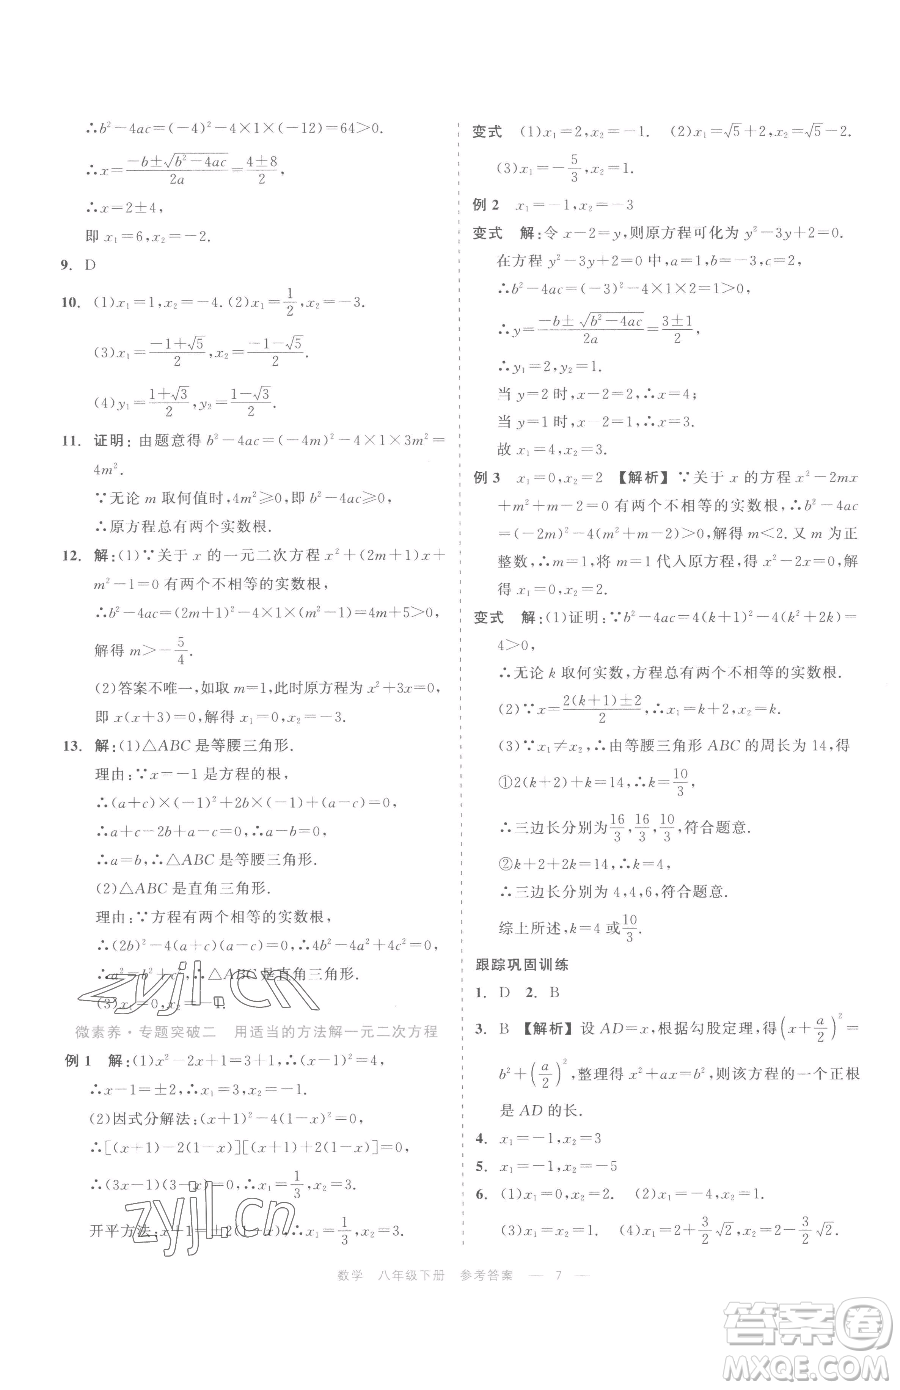 ∴b²－4ac＝(－4)²－4×1×(－12)＝64＞0.
∴x＝\frac{－b±\sqrt{b²－4ac}}{2a}＝\frac{4±8}{2},
∴x＝2±4,
即 x₁＝6,x₂＝－2.
9. D
10. (1)x₁＝1,x₂＝－4.(2)x₁＝\frac{1}{2},x₂＝－3.
(3)x₁＝\frac{－1＋\sqrt{5}}{2},x₂＝\frac{－1－\sqrt{5}}{2}.
(4)y₁＝\frac{1＋\sqrt{3}}{2},y₂＝\frac{1－\sqrt{3}}{2}.
11. 证明:由题意得 b²－4ac＝(－4m)²－4×1×3m²＝
4m².
∵无论 m 取何值时,4m²≥0,即 b²－4ac≥0,
∴原方程总有两个实数根.
12. 解:(1)∵关于 x 的一元二次方程 x²＋(2m＋1)x＋
m²－1＝0 有两个不相等的实数根,
∴b²－4ac＝(2m＋1)²－4×1×(m²－1)＝4m＋5＞0,
解得 m＞－\frac{5}{4}.
(2)答案不唯一,如取 m＝1,此时原方程为 x²＋3x＝0,
即 x(x＋3)＝0,解得 x₁＝0,x₂＝－3.
13. 解:(1)△ABC 是等腰三角形.
理由:∵x＝－1 是方程的根,
∴(a＋c)×(－1)²－2b＋(a－c)＝0,
∴a＋c－2b＋a－c＝0,
∴a－b＝0,∴a＝b,∴△ABC 是等腰三角形.
(2)△ABC 是直角三角形.
理由:∵方程有两个相等的实数根,
∴(2b)²－4(a＋c)(a－c)＝0,∴4b²－4a²＋4c²＝0,
∴a²＝b²＋c²,∴△ABC 是直角三角形.
(3)x₁＝0,x₂＝－1.
微素养·专题突破二 用适当的方法解一元二次方程
例 1 解:(1)x²－2x＋1＝3＋1,∴(x－1)²＝4,
∴x－1＝±2,∴x₁＝3,x₂＝－1.
(2)因式分解法:(x＋1)²－4(x－1)²＝0,
∴[(x＋1)－2(x－1)][(x＋1)＋2(x－1)]＝0,
∴(3x－1)(3－x)＝0,∴x₁＝\frac{1}{3},x₂＝3.
开平方法:x＋1＝±2(1－x),∴x₁＝\frac{1}{3},x₂＝3.
变式 (1)x₁＝2,x₂＝－1. (2)x₁＝\sqrt{5}＋2,x₂＝\sqrt{5}－2.
(3)x₁＝－\frac{5}{3},x₂＝1.
例 2 x₁＝－1,x₂＝－3
变式 解:令 x－2＝y,则原方程可化为 y²－3y＋2＝0.
在方程 y²－3y＋2＝0 中,a＝1,b＝－3,c＝2,
∴b²－4ac＝(－3)²－4×1×2＝1＞0,
∴y＝\frac{－b±\sqrt{b²－4ac}}{2a}＝\frac{3±1}{2},
∴y₁＝2,y₂＝1.
当 y＝2 时,x－2＝2,∴x＝4;
当 y＝1 时,x－2＝1,∴x＝3.
故 x₁＝4,x₂＝3.
例 3 x₁＝0,x₂＝2 【解析】∵关于 x 的方程 x²－2mx
＋m²＋m－2＝0 有两个不相等的实数根,∴b²－4ac
＝(－2m)²－4(m²＋m－2)＞0,解得 m＜2.又 m 为正
整数,∴m＝1,将 m＝1 代入原方程,得 x²－2x＝0,解
得 x₁＝0,x₂＝2.
变式 解:(1)证明:∵b²－4ac＝4(k＋1)²－4(k²＋2k)＝
4＞0,
∴无论 k 取何实数,方程总有两个不相等的实数根.
(2)∵x＝\frac{2(k＋1)±2}{2},∴x₁＝k＋2,x₂＝k.
(3)∵x₁≠x₂,等腰三角形 ABC 的周长为 14,得
①2(k＋2)＋k＝14,∴k＝\frac{10}{3},
∴三边长分别为\frac{16}{3},\frac{16}{3},\frac{10}{3},符合题意.
②k＋2＋2k＝14,∴k＝4,
∴三边长分别为 4,4,6,符合题意.
综上所述,k＝4 或\frac{10}{3}.
跟踪巩固训练
1. D 2. B
3. B 【解析】设 AD＝x,根据勾股定理,得(x＋\frac{a}{2})²＝
b²＋(\frac{a}{2})²,整理得 x²＋ax＝b²,则该方程的一个正根
是 AD 的长.
4. x₁＝－1,x₂＝3
5. x₁＝－1,x₂＝5
6. (1)x₁＝0,x₂＝2. (2)x₁＝－4,x₂＝1.
(3)x₁＝x₂＝1. (4)x₁＝2＋\frac{3}{2}\sqrt{2},x₂＝2－\frac{3}{2}\sqrt{2}.
数学 八年级下册 参考答案 — 7 —
zyjl.cn
zyjl.cn
答案圈
MXQE.COM